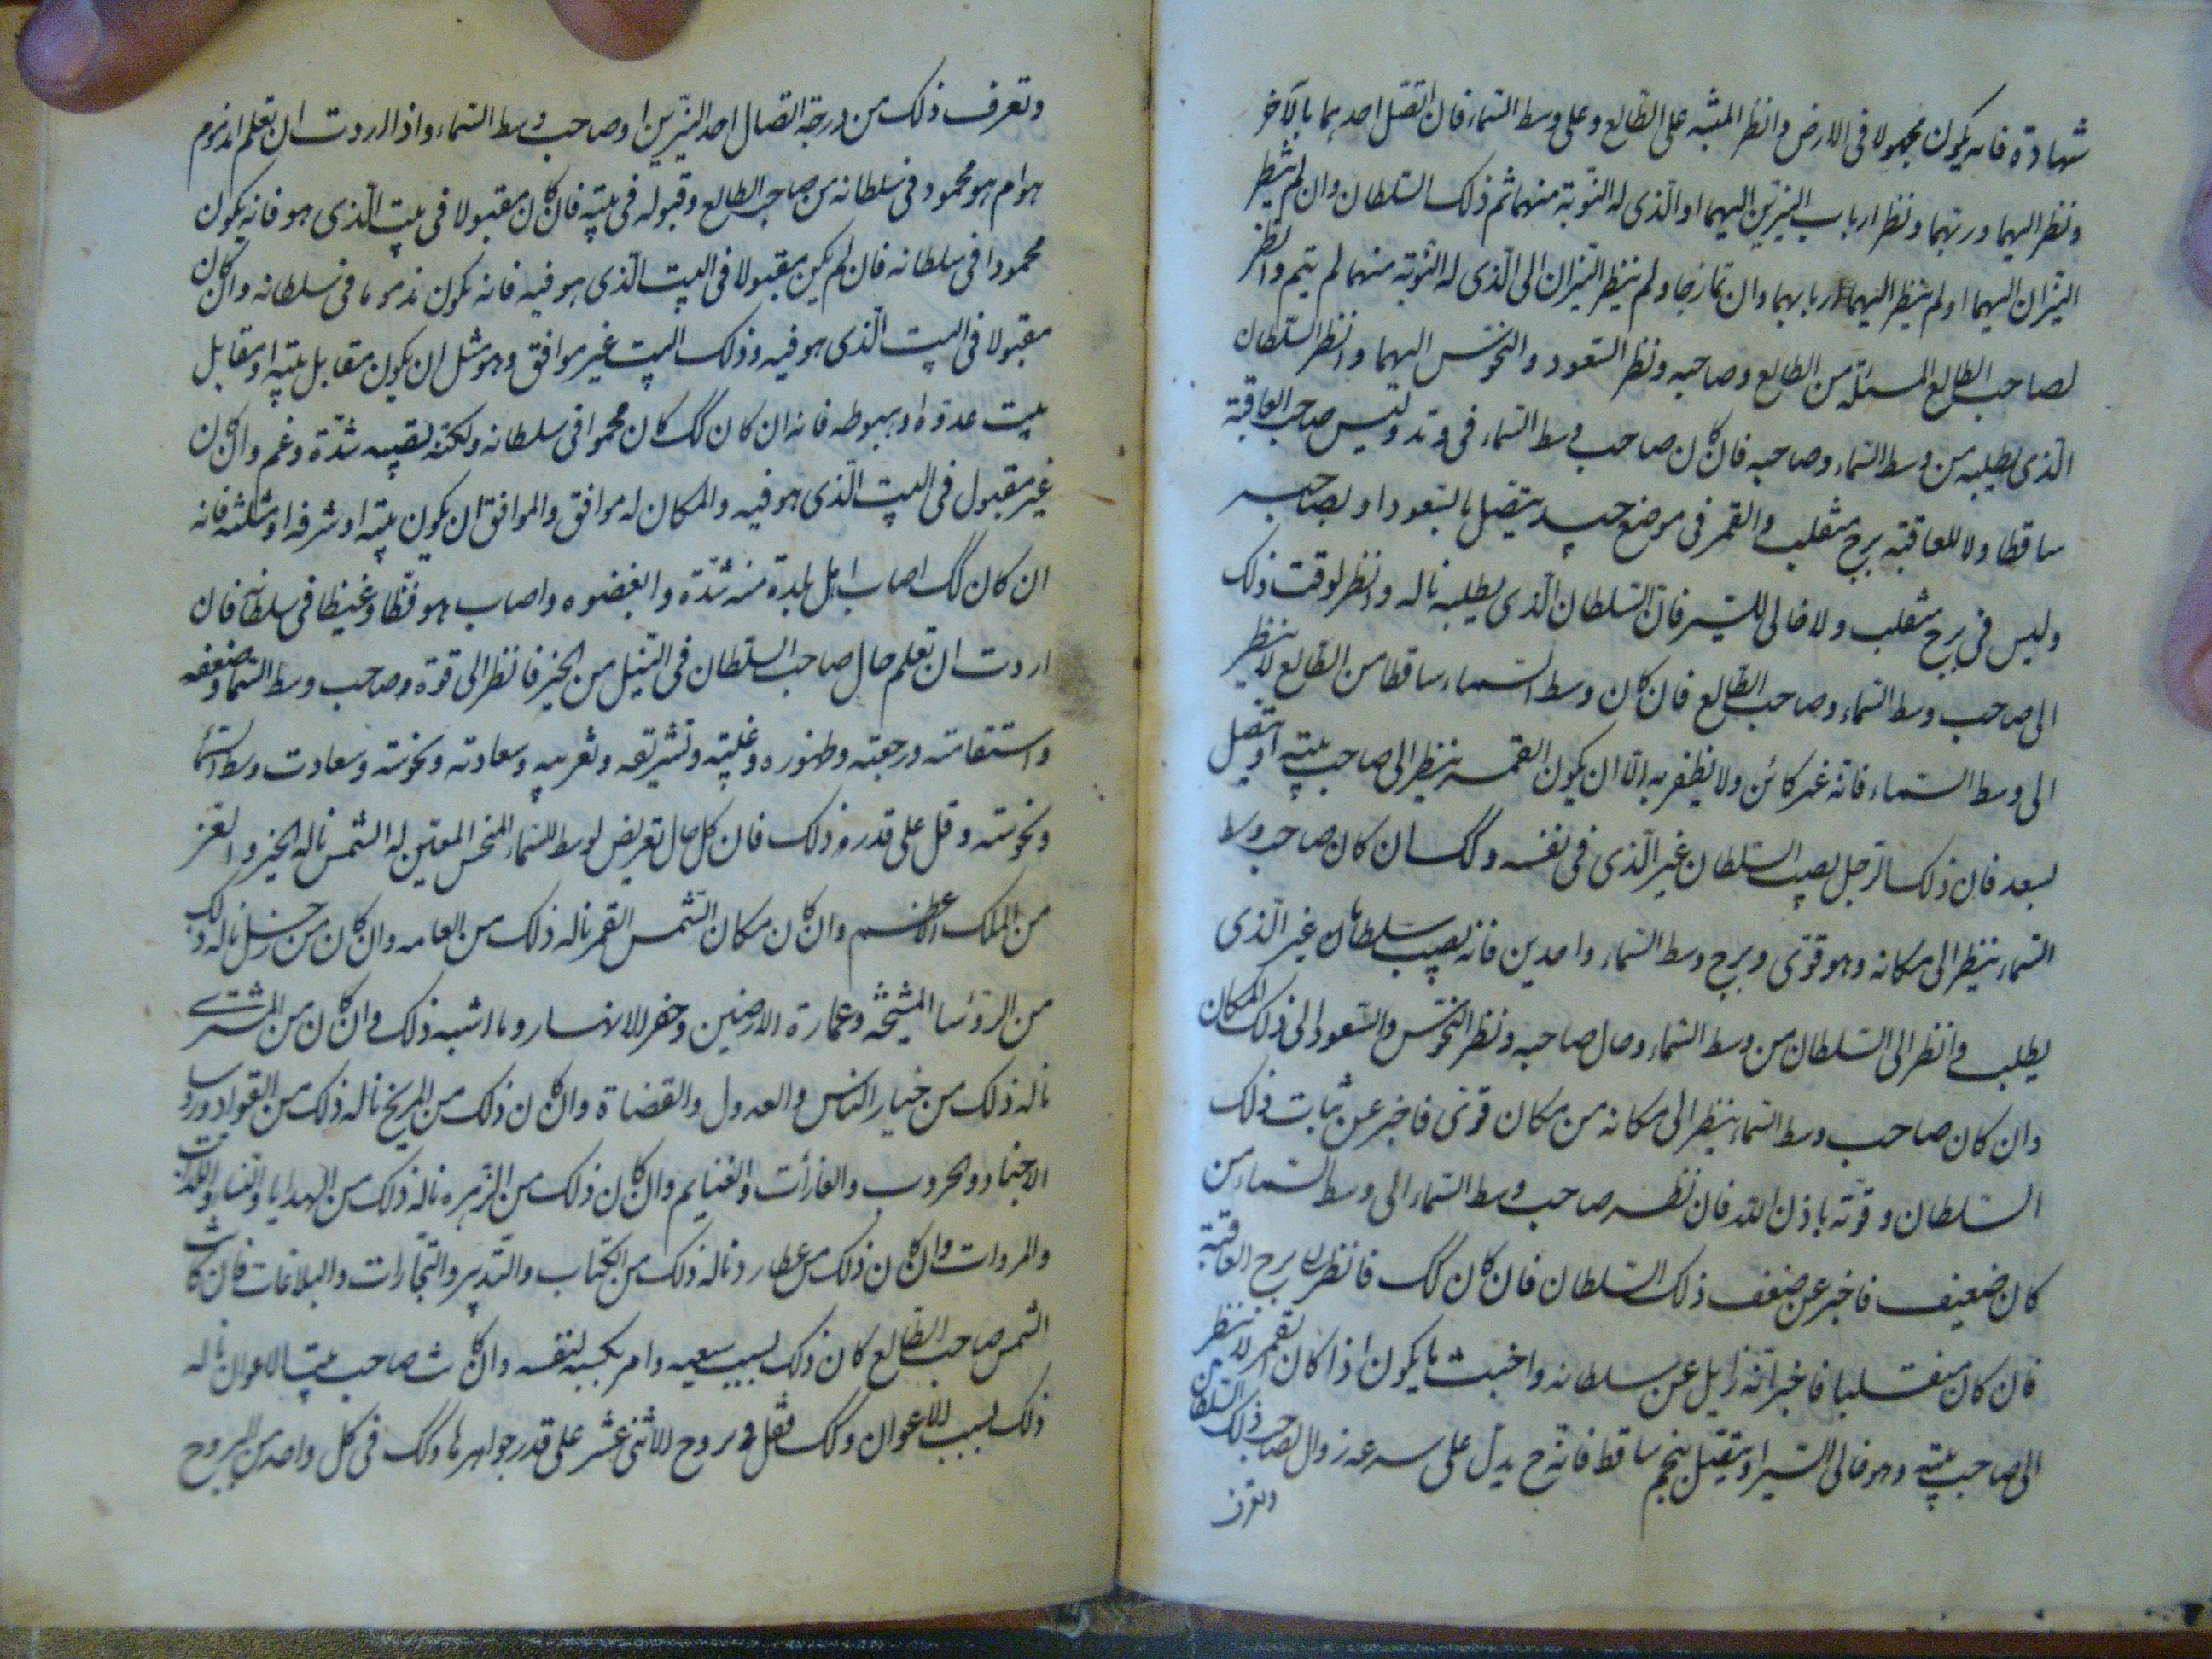 شهادة فانه يكون مجهولا فى الارض وانظر المشبه على الطالع وعلى وسط السماء فان اتصل احدهما بالآخر
ونظر اليهما وربهما ونظر ارباب النيرين اليهما او الذى له النوبة منهما ثم ذلك السلطان وان لم ينظر
النيران اليهما او لم ينظر اليهما اربابهما وان تمازجا ولم ينظر النيران الى الذى له النوبة منهما لم يتم وانظر
لصاحب الطالع المسئلة من الطالع وصاحبه ونظر السعود والنحوس اليهما وانظر السلطان
الذى يطلبه من وسط السماء وصاحبه فان كان صاحب وسط السماء فى وتد وليس صاحب العاقبة
ساقطا ولا للعاقبة برج منقلب والقمر فى موضع جيد يتصل بالسعود او بصاحبه
وليس فى برج منقلب ولا خالى السير فان السلطان الذى يطلبه ناله وانظر لوقت ذلك
الى صاحب وسط السماء وصاحب الطالع فان كان وسط السماء ساقطا من الطالع لا ينظر
الى وسط السماء فانه غير كائن ولا يظفر به الا ان يكون القمر ينظر الى صاحب بيته او يتصل
بسعد فان ذلك الرجل يصيب السلطان غير الذى فى نفسه وكك ان كان صاحب وسط
السماء ينظر الى مكانه وهو قوى وبرج وسط السماء واحدين فانه يصيب سلطانا غير الذى
يطلب وانظر الى السلطان من وسط السماء وحال صاحبه ونظر النحوس والسعود الى ذلك المكان
وان كان صاحب وسط السماء ينظر الى مكانه من مكان قوى فاخبر عن ثبات ذلك
السلطان وقوته باذن الله فان نظر صاحب وسط السماء الى وسط السماء من
كان ضعيف فاخبر عن ضعف ذلك السلطان فان كان كك فانظر برج العاقبة
فان كان منقلبا فاخبر انه زايل عن سلطانه واخبث ما يكون اذا كان القمر لا ينظر
الى صاحب بيته وهو خالى السير او يتصل بنجم ساقط فانه ح يدل على سرعه زوال لصاحب ذلك السلطان
وتعرف
وتعرف ذلك من درجة اتصال احد النيرين او صاحب وسط السماء واذا اردت ان تعلم امذموم
هو ام هو محمود فى سلطانه من صاحب الطالع وقبوله فى بيته فان كان مقبولا فى بيت الذى هو فانه يكون
محمودا فى سلطانه فان لم يكن مقبولا فى البيت الذى هو فيه فانه يكون مذموما فى سلطانه وان كان
مقبولا فى البيت الذى هو فيه وذلك البيت غير موافق وهو مثل ان يكون مقابل بيته او مقابل
بيت عدوه او هبوطه فانه ان كان كك كان محموا فى سلطانه ولكنه تصيبه شدة وغم وان كان
غير مقبول فى البيت الذى هو فيه والمكان له موافق والموافق ان يكون بيته او شرفه او مثلثه فانه
ان كان كك اصاب اهل بلدة منه شدة وابغضوه واصاب هو فظا وغيظا فى سلطانه فان
اردت ان تعلم حال صاحب السلطان فى النيل من الخير فانظر الى قوة وصاحب وسط السماء وضعفه
واستقامته ورجعته وظهوره وغلبته وتشريقه وتغريبه وسعادته ونحوسته وسعادت وسط السماء
ونحوسته وقل على قدر ذلك فان كل حال تعريض لوسط السماء النحس المعين له الشمس ناله الخير والعز
من الملك الاعظم وان كان مكان الشمس القمر ناله ذلك من العامه وان كان من زحل ناله ذلك
من الرؤسا المشيخه وعمارة الارضين وحفر الانهار وما اشبه ذلك وان كان من المشترى
ناله ذلك من خيار الناس والعدول والقضاة وان كان ذلك من المريخ ناله ذلك من القواد ورؤسا
الاجناد والحروب والغارات والغنايم وان كان ذلك من الزهره ناله ذلك من الهدايا والنساء واللذات
والمروات وان كان ذلك من عطارد ناله ذلك من الكتاب والتدبير والتجارات والبلاغات فان كانت
الشمس صاحب الطالع كان ذلك بسبب سعيه وامر يكسبه لنفسه وان كانت صاحب بيت الاعوان ناله
ذلك بسبب الاعوان وكك فقل فى بروج الاثنى عشر على قدر جواهرها وكك فى كل واحد من البروج